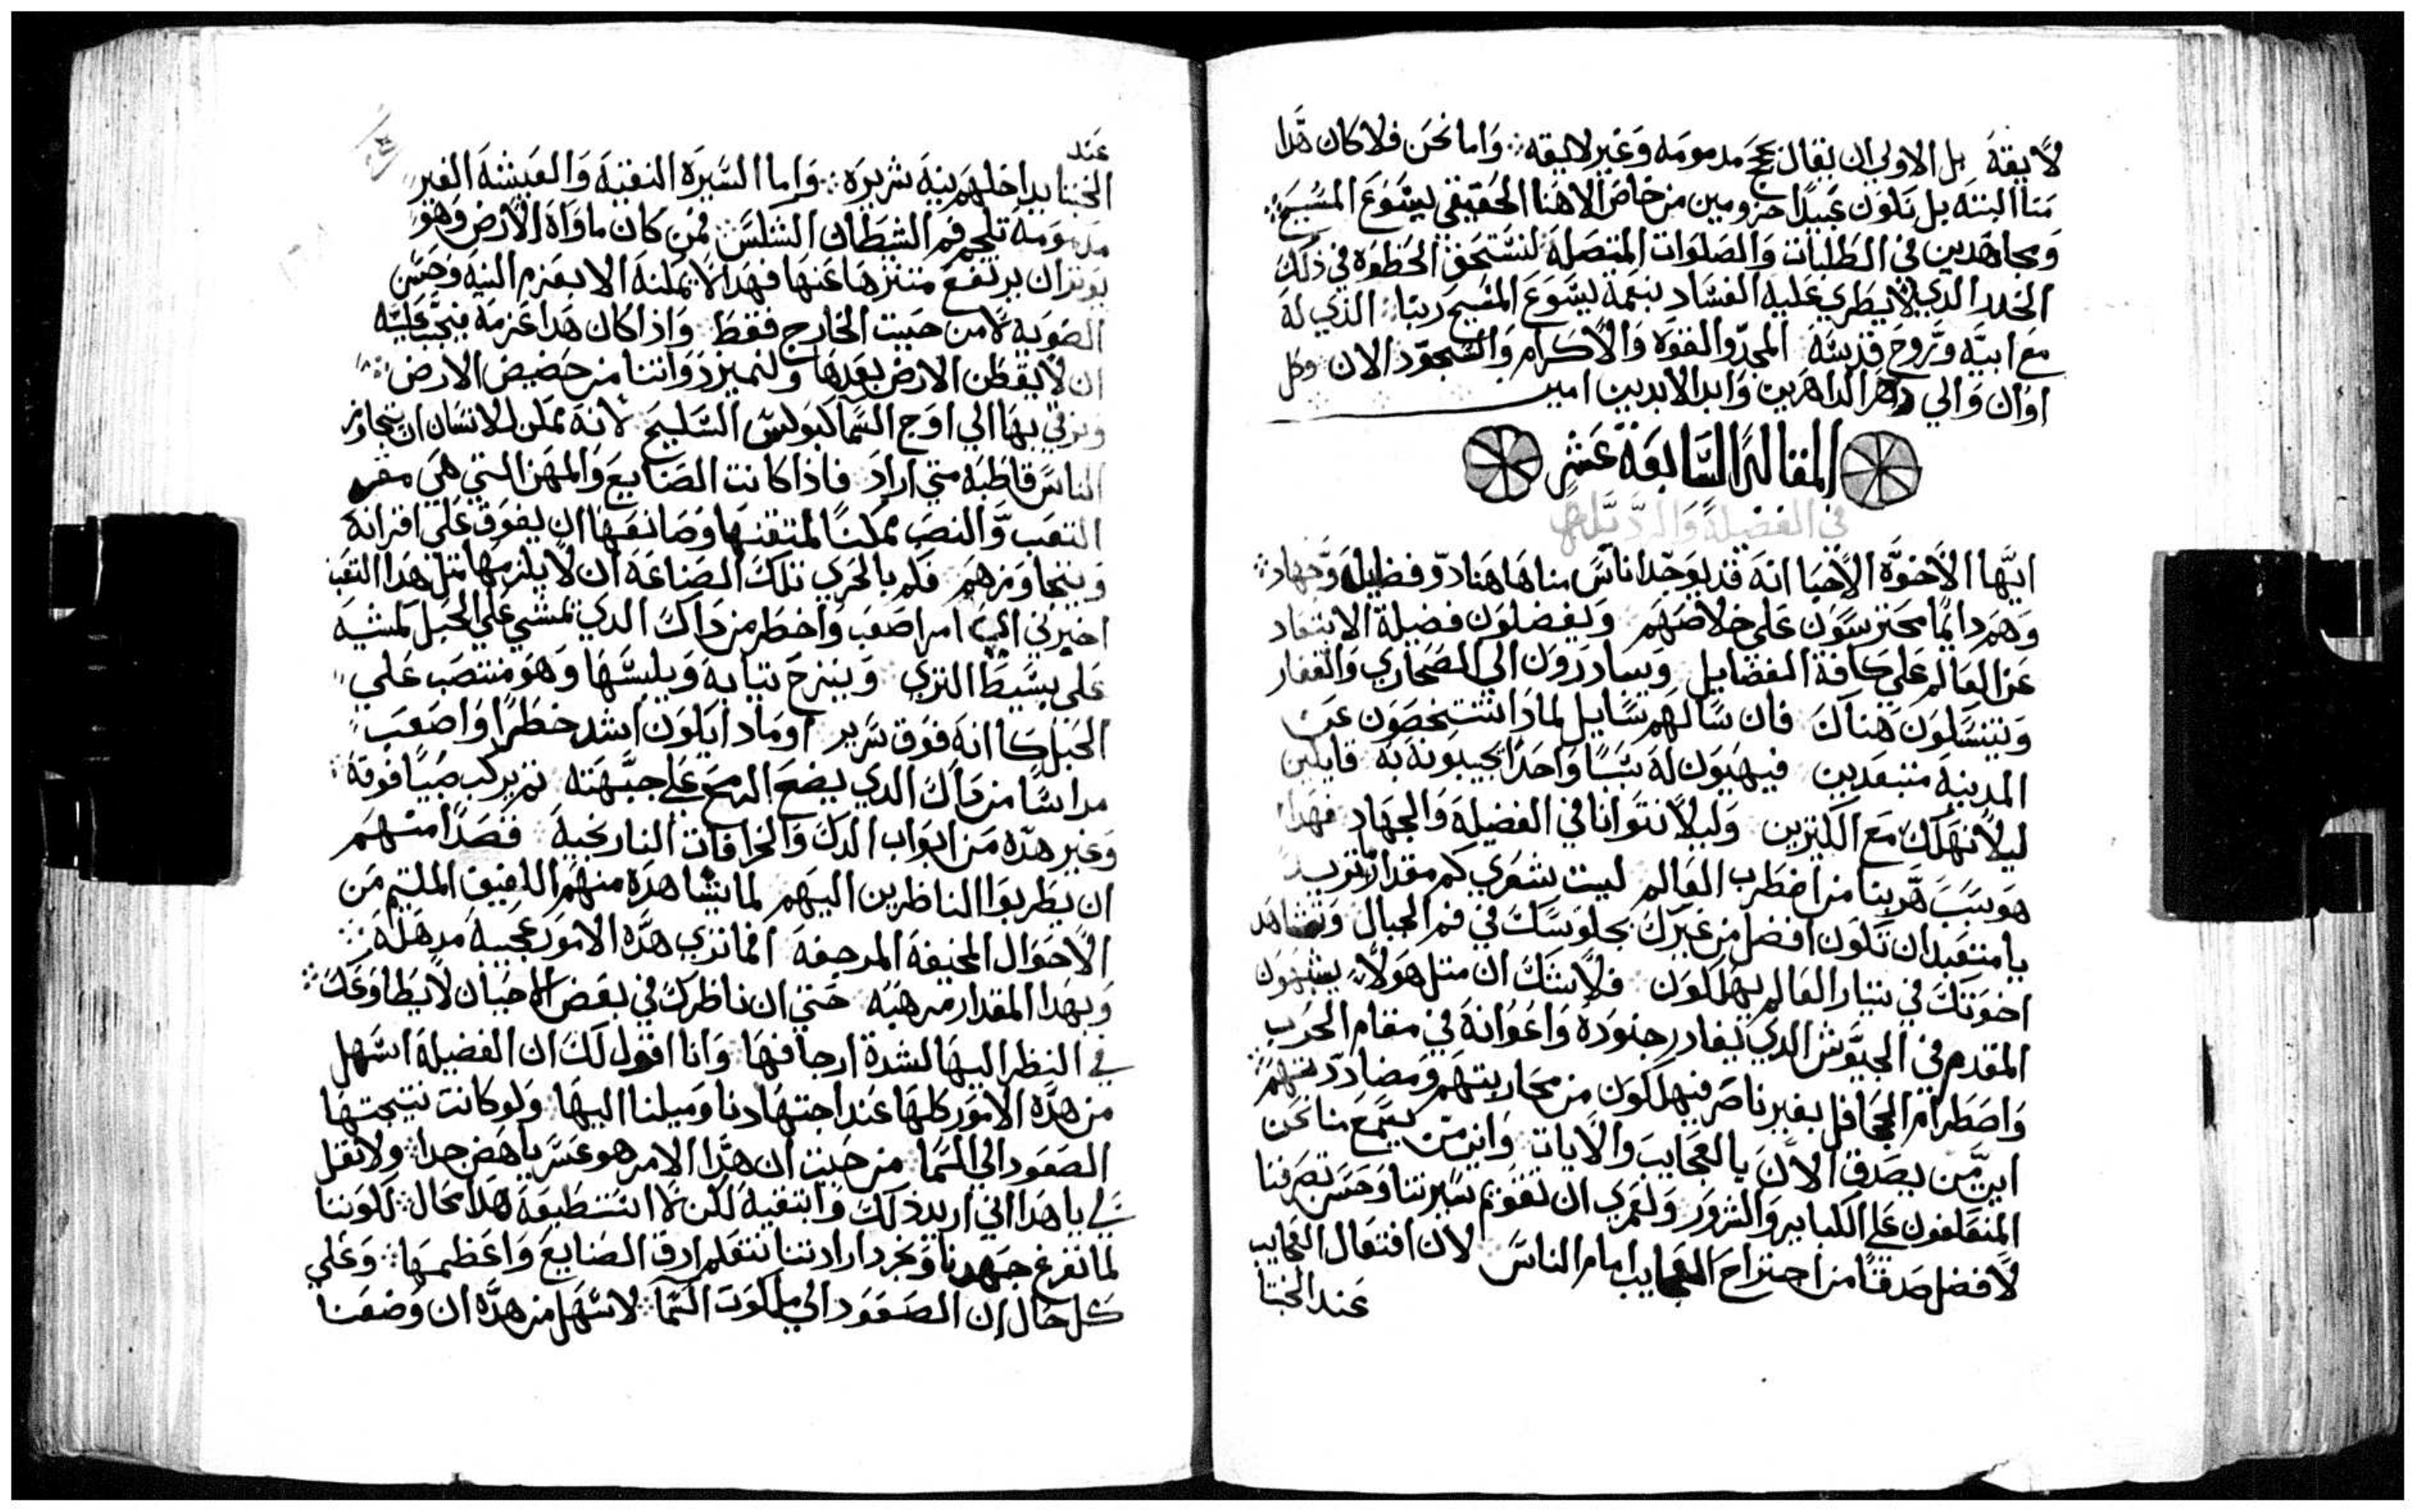 لايقة بل الاولي ان يقال حجج مدمومه وغير لايقه وَاما نحن فلا كان هدا
منا البتة بل نكون عبيدًا حزومين من خاض الاهنا الحقيقي يسوع المسيح
ومجاهدين في الطلبات والصلوات المتصلة لنستحق الحظوه في ذلك
الخدر الدي لا يطري عليه الفساد بنعمة يسوع المسيح ربنا الذي له
مع ابيه وروح قدسه المجد والقوة والاكرام والسجود الان وكل
اوان والي دهر الداهرين وابد الابدين امين
المقالة السابعة عشر
في الفضيلة والرديلة
ايها الاخوة الاحبا انه قد يوجد اناس مناها هنا دو فضيلة وجهاد
وهم دايمًا محترسون على خلاصهم ويفضلون فضيلة الابتعاد
عن العالم على كافة الفضايل ويبادرون الي الصحاري والقفار
ويتنسكون هناك فان سالهم سايل لمادا تشخصون عن
المدينة مبتعدين فيهيون له سببًا واحدًا يجيبونه به قايلين
ليلا نهلك مع الكثيرين وليلا نتوانا في الفضيلة والجهاد فهدا
هو سبب هربنا من اضطرب العالم ليت شعري كم مقدار
يا متعبد ان تكون افضل من غيرك بجلوسك في قمم الجبال وتشاهد
اخوتك في تيار العالم يهلكون فلا شك ان متل هولاء يشبهون
المقدم في الجيوش الدي يغادر جنوده واعوانه في مقام الحرب
واصطرام الجحافل بغير ناصر فيهلكون من محاربتهم ومضاددتهم
اين من يصدق الان بالعجايب والايات واين من يسمع منا نحن
المتعلفون على الكباير والشرور ولعمري ان تقويم سيرتنا وحسن تصرفنا
لافضل صدقًا من اجتراح العجايب امام الناس لان افتعال العجايب
عند الخبتا
عند
الخبتا يداخلهم بنية شريره واما السيرة النقية والعيشة الغير
مدمومة تلجم فم الشطان الشلس فمن كان ماواه الارض وهو
يوتر ان يرتفع متنزها عنها فهدا لا يمكنه الا بعزم النية وحسن
الصوبة لا من حيت الخارج فقط وادا كان هدا عزمه فيجب عليه
ان لا يقطن الارض بعدها ولنميز دواتنا من حضيض الارض
ونرقي بها الي اوج السما كبولس السليح لانه يمكن الانسان ان يتجاوز
الناس قاطبة متي اراد فادا كانت الصنايع والمهن التي هي
التعب والنصب ممكنًا لمتقنها وصانعها ان يفوق على اقرانه
ويتجاوزهم فلم بالحري تلك الصناعة ان لا يلزمها متل هدا التعب
اخبرني امر اصعب واخطر من داك الدي يمشي على الحبل كمشيه
على بسيط التري وينزح تيابه ويلبسها وهو منتصب على
الحبل كانه فوق سرير او مادا يكون اشد خطرًا واصعب
مراسًا من داك الدي يضع الرمح على جبهته تم يركب صبيًا فوقه
وغير هده من ابواب الدك والخرافات النارنجية قصدًا منهم
ان يطربوا الناظرين اليهم لما يشاهده منهم اللفيف الملتيم من
الاحوال المخيفة المرجفة افما تري هده الامور عجيبة مدهلة
وبهدا المقدار مرهبه حتي ان ناظرك في بعض الاحيان لا يطاوعك
في النظر اليها لشدة ارجافها وانا اقول لك ان الفضيلة اسهل
من هده الامور كلها عند اجتهادنا وميلنا اليها ولو كانت نتيجتها
الصعود الي السما من حيت ان هدا الامر هو عسر باهض جدا ولا تقل
لي يا هدا اني اريد ذلك وابتغيه لكن لا استطيعه هدا محال لكوننا
لما نفرغ جهدنا ونجرد ارادتنا نتعلم ادق الصنايع واعظمها وعلي
كل حال ان الصعود الي ملكوت السما لاسهل من هده ان وضعنا